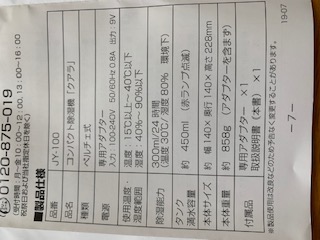 0120-875-019
(受付時間：月〜金 10：00〜12：00、13：00〜16：00
祝祭日および当社指定休日を除く)
■製品仕様
品番 JY-100
品名 コンパクト除湿機「クアラ」
種類 ペルチェ式
電源 専用アダプター
入力：100-240V 50/60Hz 0.8A 出力：9V
使用温度・湿度範囲 温度：15℃以上〜40℃以下
湿度：40％〜90％以下
除湿能力 300ml/24時間
(温度30℃/湿度80％ 環境下)
タンク満水容量 約 450ml (赤ランプ点滅)
本体サイズ 約 幅140×奥行140×高さ228mm
本体重量 約 858g (アダプターを含まず)
付属品 専用アダプター ×1
取扱説明書 (本書) ×1
製品仕様は改良などのため予告なく変更することがあります。
19-07
－7－